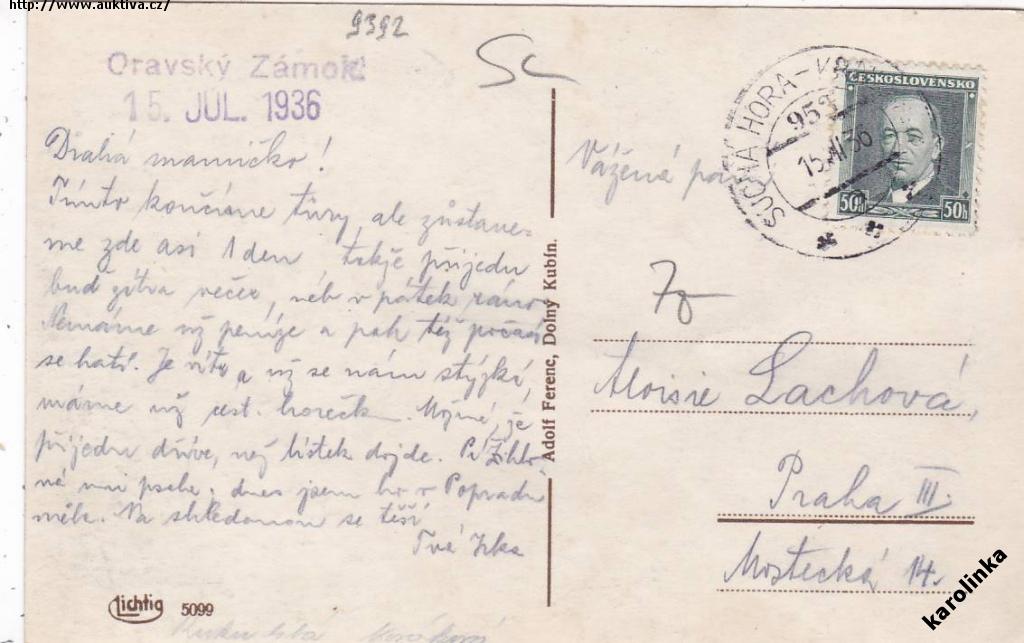 http://www.auktiva.cz/
9392
Oravský Zámok
15. JUL. 1936
Drahá maminko!
Tímto končíme túry ale zůstane-
me zde asi 1 den takže přijedu
buď zítra večer, neb v pátek ráno
Nemáme už peníze a pak též počasí
se katí. Je vítr a už se nám stýská,
máme už cest. horečk. Možné, je
přijedu dříve, než lístek dojde. Pí
mi psala, dnes jsem ho v Popradu
měla. Na shledanou se těší
Tvá
Lichtig 5099
Adolf Ferenc, Dolný Kubín.
SUCHÁ HORA-
953
15.VII.36
ČESKOSLOVENSKO
50h 50h
Vážená paní
Aloisie Lachová,
Praha III.
Mostecká 14.
karolinka